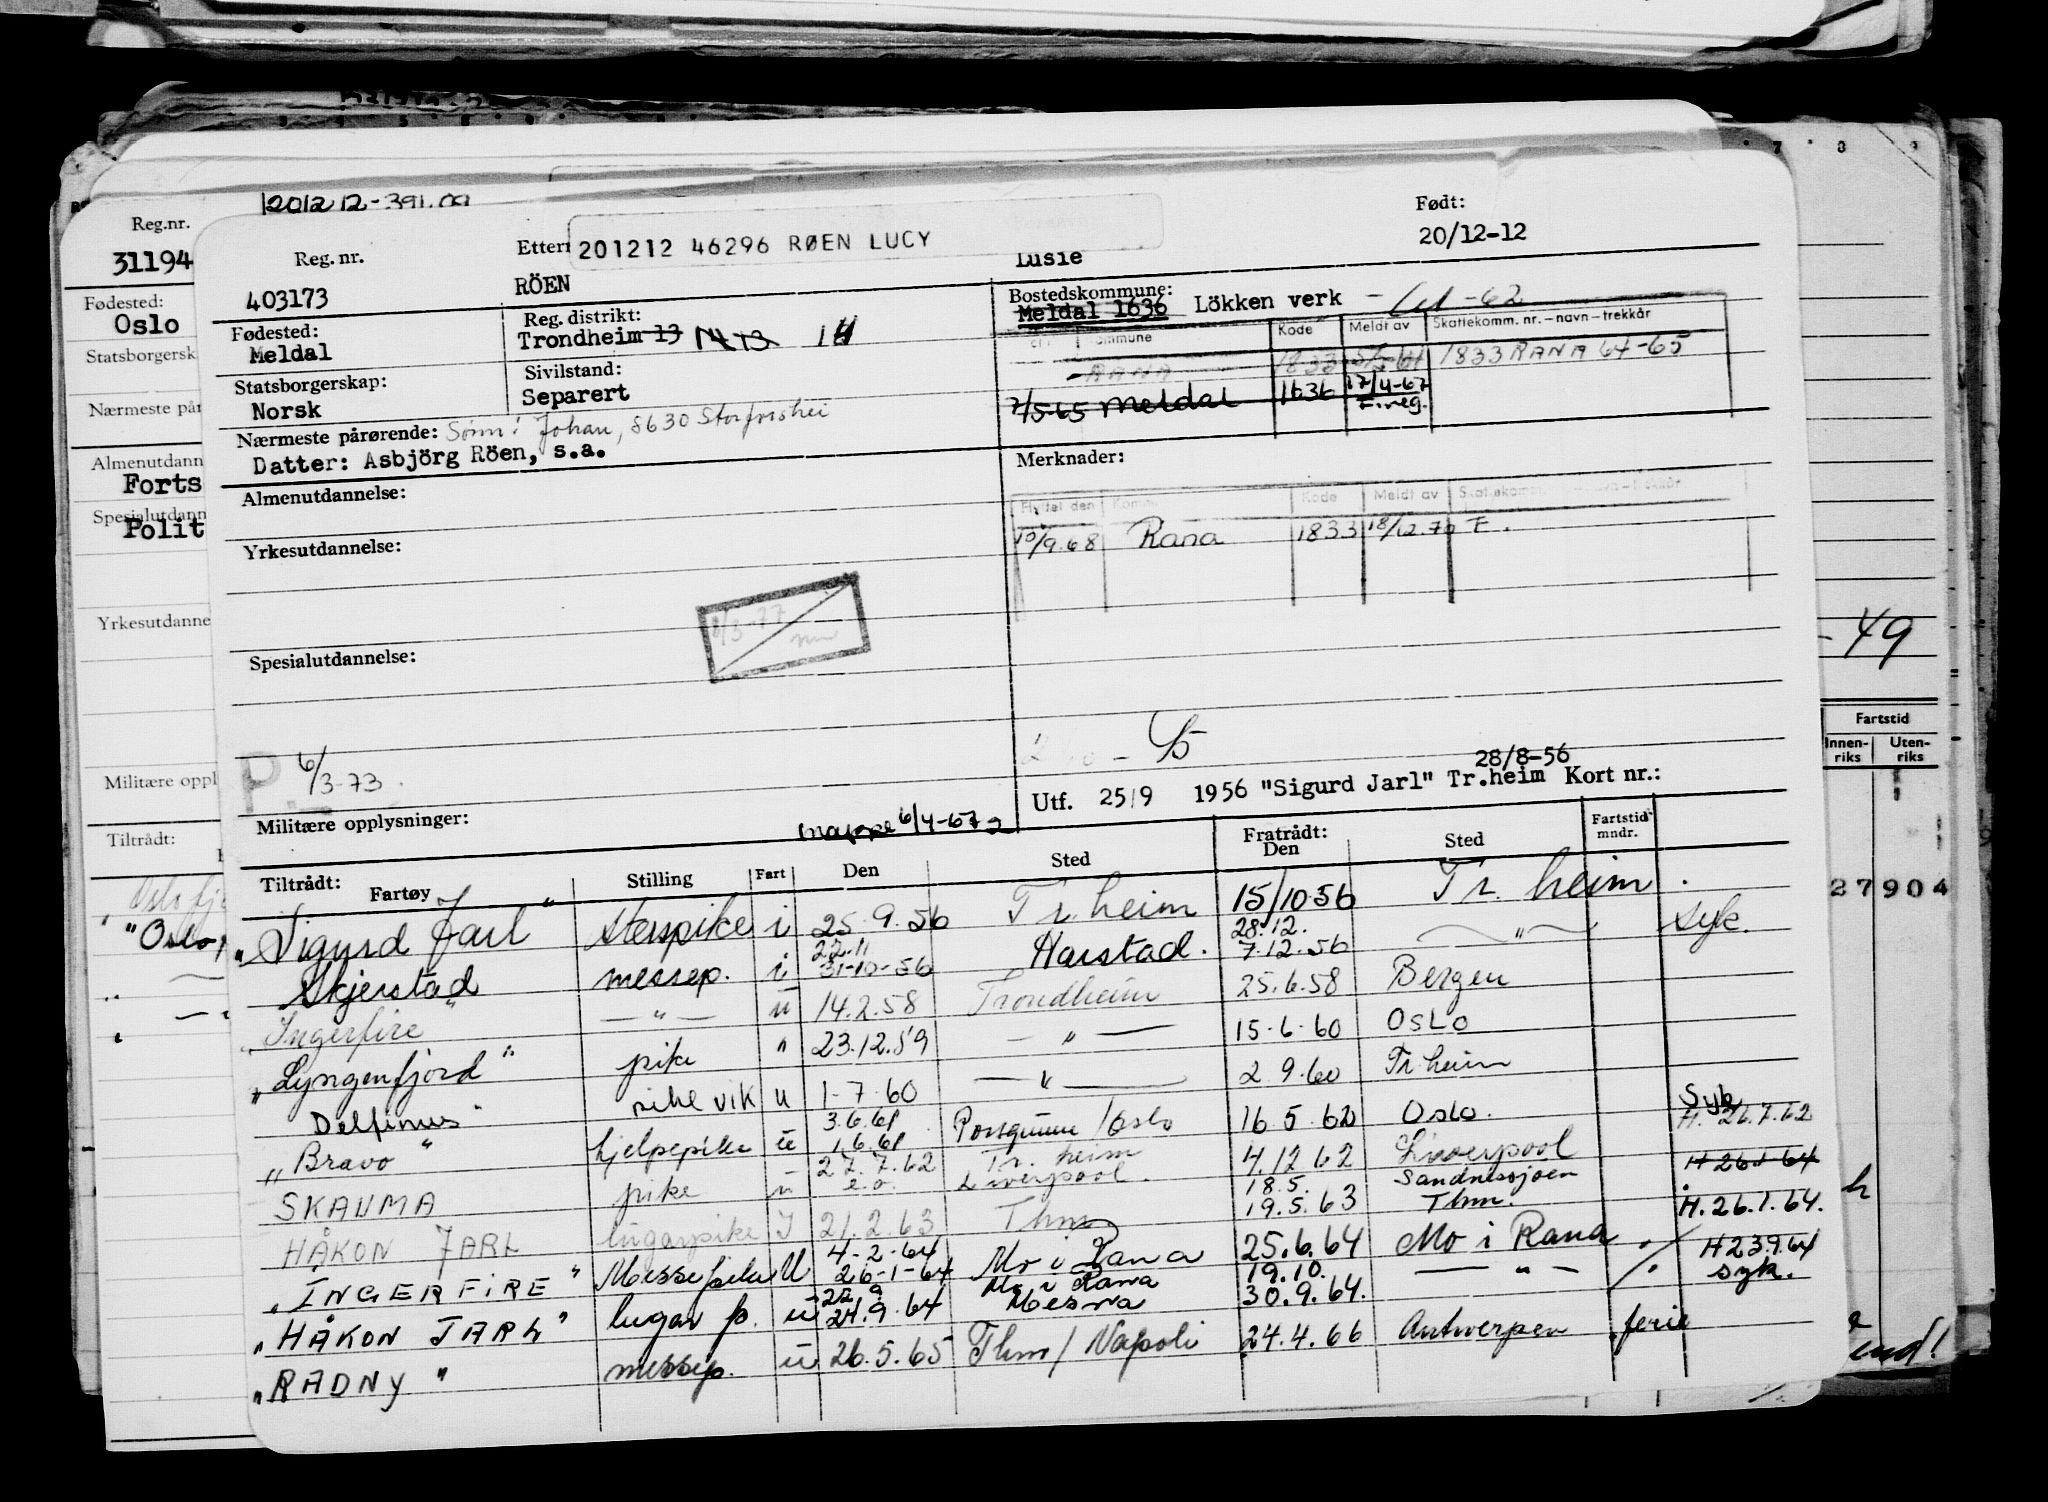 201212-391.09
Reg.nr.
31194
Fødested:
Oslo
Statsborgersk
Nærmeste pår
Almenutdann
Forts
Spesialutdann
Polit
Yrkesutdanne
Militære oppl
Tiltrådt:
"Oslo
Reg. nr.
403173
Ettern
201212 46296 RØEN LUCY
RÖEN
Lusie
Født:
20/12-12
Fødested:
Meldal
Reg. distrikt:
Trondheim 13 14
Bostedskommune:
Meldal 1636 Lökken verk
-62
Statsborgerskap:
Norsk
Sivilstand:
Separert
ommune Kode Meldt av Skattekomm. nr. – navn – trekkår
RANA 1833 1833 RANA 64-65
2/5-65 Meldal 1636 17/4-67 F.reg.
Nærmeste pårørende: Sønn: Johan, 8630 Storforshei
Datter: Asbjörg Röen, s.a.
Merknader:
Almenutdannelse:
Flyttet den Komm. Kode Meldt av Skattekomm. – trekkår
10/9.68 Rana 1833 18/12.70 F.
Yrkesutdannelse:
Spesialutdannelse:
8/3-77
P 6/3-73.
28/8-56
Utf. 25/9 1956 "Sigurd Jarl" Tr.heim Kort nr.:
Militære opplysninger:
mappe 6/4-67
Tiltrådt: Fartøy Stilling Fart Den Sted Fratrådt: Den Sted Fartstid mndr.
"Sigurd Jarl" i 25.9.56 Tr.heim 15/10-56 Tr.heim.
Skjerstad messep. i 22.11 31-10-56 Harstad. 28.12. 7.12.56 — " — syk.
"Ingerfire" — " — u 14.2.58 Trondheim 25.6.58 Bergen
"Lyngenfjord" pike " 23.12.59 — " — 15.6.60 OSLO
Delfinus" pike vik u 1-7-60 — " — 2.9.60 Tr.heim
"Bravo" hjelpepike u 3.6.61 1.6.61 Porsgrunn/Oslo 16.5.62 Oslo. Syk H. 26.7.62
SKAUMA pike u 27.7.62 e.o. Tr.heim Liverpool. 4.12.62 Liverpool H 26.1.64
HÅKON JARL lugarpike I 21.2.63 Thm 18.5. 19.5.63 Sandnessjøen Thm. H. 26.1.64.
"INGERFIRE" Messepike U 4-2-64 26-1-64 Mo i Rana 25.6.64 Mo i Rana H 23.9.64
"HÅKON JARL" lugar p. u 24.9.64 Mo i Rana 19.10. 30.9.64. — " — syk.
"RADNY" messep. u 26.5.65 Thm/Napoli 24.4.66 Antwerpen ferie
- 49
Fartstid
Innen-riks Uten-riks
27904
7 8 9